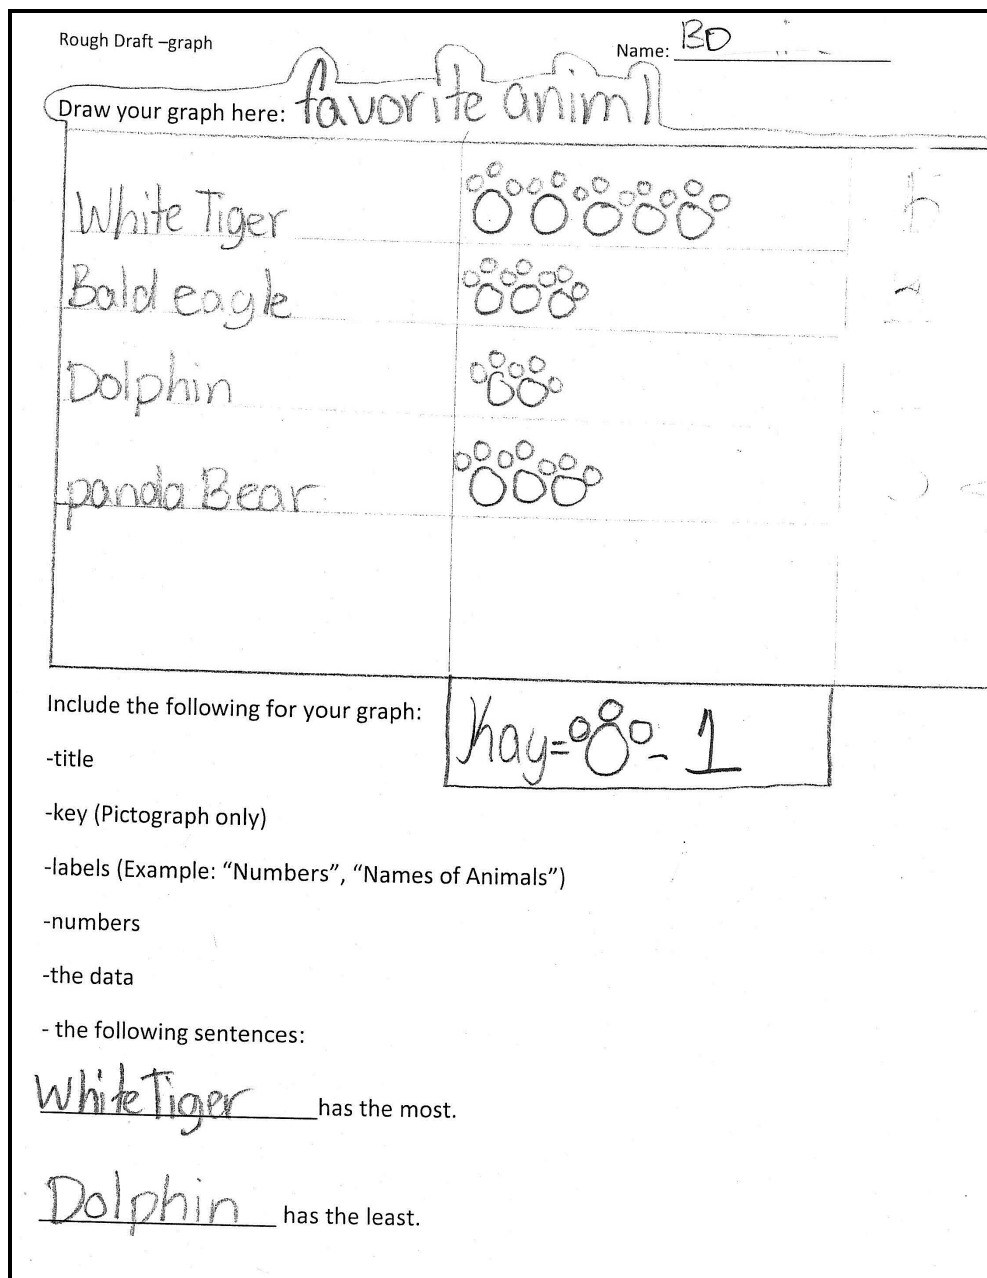 Rough Draft –graph
Name: BD
Draw your graph here: favorite animl
White Tiger
Bald eagle
Dolphin
panda Bear
Include the following for your graph:
Kay= - 1
-title
-key (Pictograph only)
-labels (Example: “Numbers”, “Names of Animals”)
-numbers
-the data
- the following sentences:
White Tiger has the most.
Dolphin has the least.